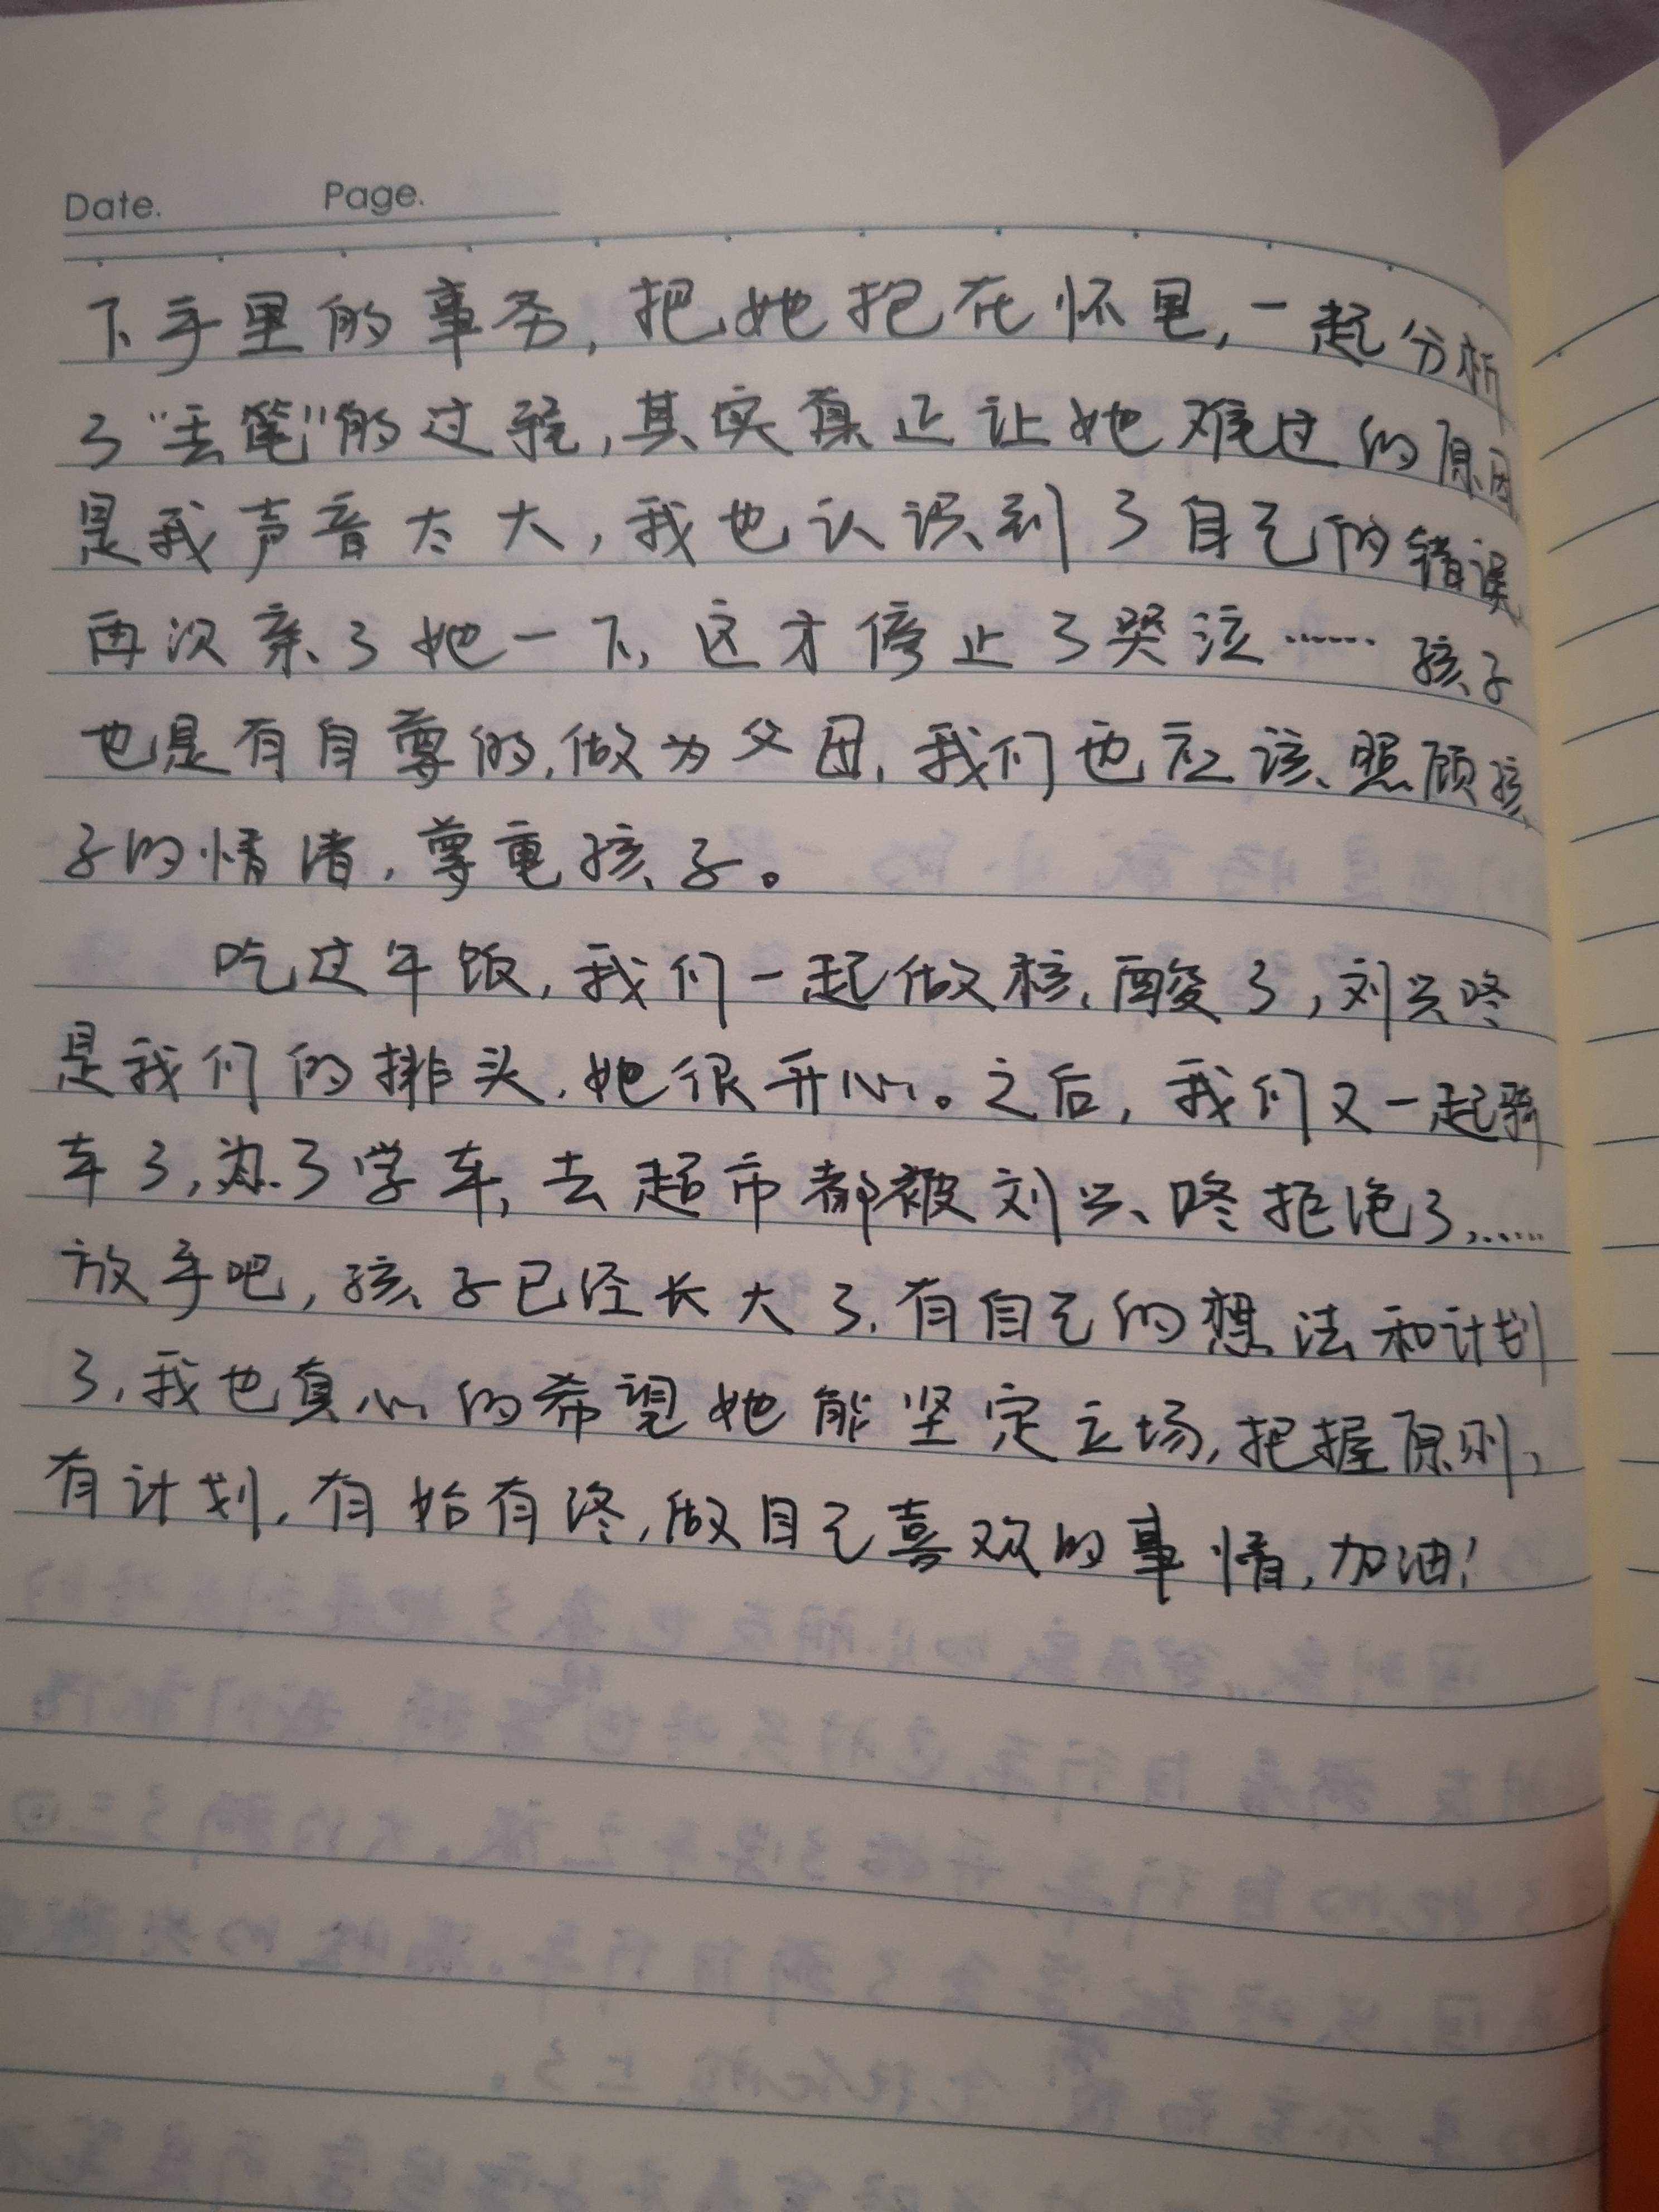 Date. Page.
下手里的事务,把她抱在怀里,一起分析
了"丢笔"的过程,其实真正让她难过的原因
是我声音太大,我也认识到了自己的错误
再次亲了她一下,这才停止了哭泣……孩子
也是有自尊的,做为父母,我们也应该照顾孩
子的情绪,尊重孩子。
吃过午饭,我们一起做核酸了,刘兴咚
是我们的排头,她很开心。之后,我们又一起骑
车了,为了学车,去超市都被刘兴咚拒绝了,……
放手吧,孩子已经长大了,有自己的想法和计划
了,我也真心的希望她能坚定立场,把握原则,
有计划,有始有终,做自己喜欢的事情,加油!